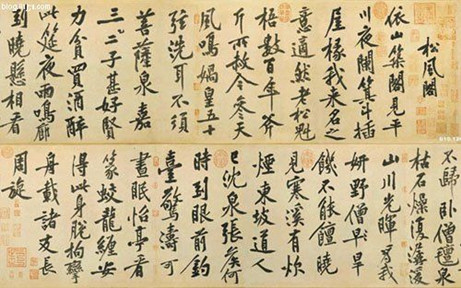 松風閣
依山築閣見平
川夜闌箕斗插
屋椽我来名之
意適然老松魁
梧數百年斧
斤所赦今參天
風鳴媧皇五十
弦洗耳不須
菩薩泉嘉
三二子甚好賢
力貧買酒醉
此筵夜雨鳴廊
到曉懸相看
不歸卧僧氊泉
枯石燥復潺湲
山川光暉爲我
妍野僧旱
饑不能饘曉
見寒溪有炊
煙東坡道人
已沈泉張侯何
時到眼前釣
臺驚濤可
晝眠怡亭看
篆蛟龍纏安
得此身脫拘攣
舟載諸友長
周旋